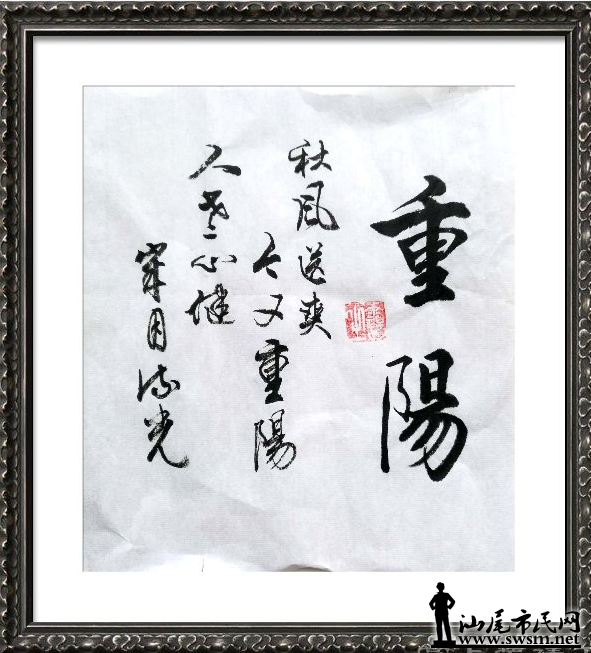 重陽
秋風送爽
今又重陽
人老心健
歲月流光
汕尾市民网
www.swsm.net